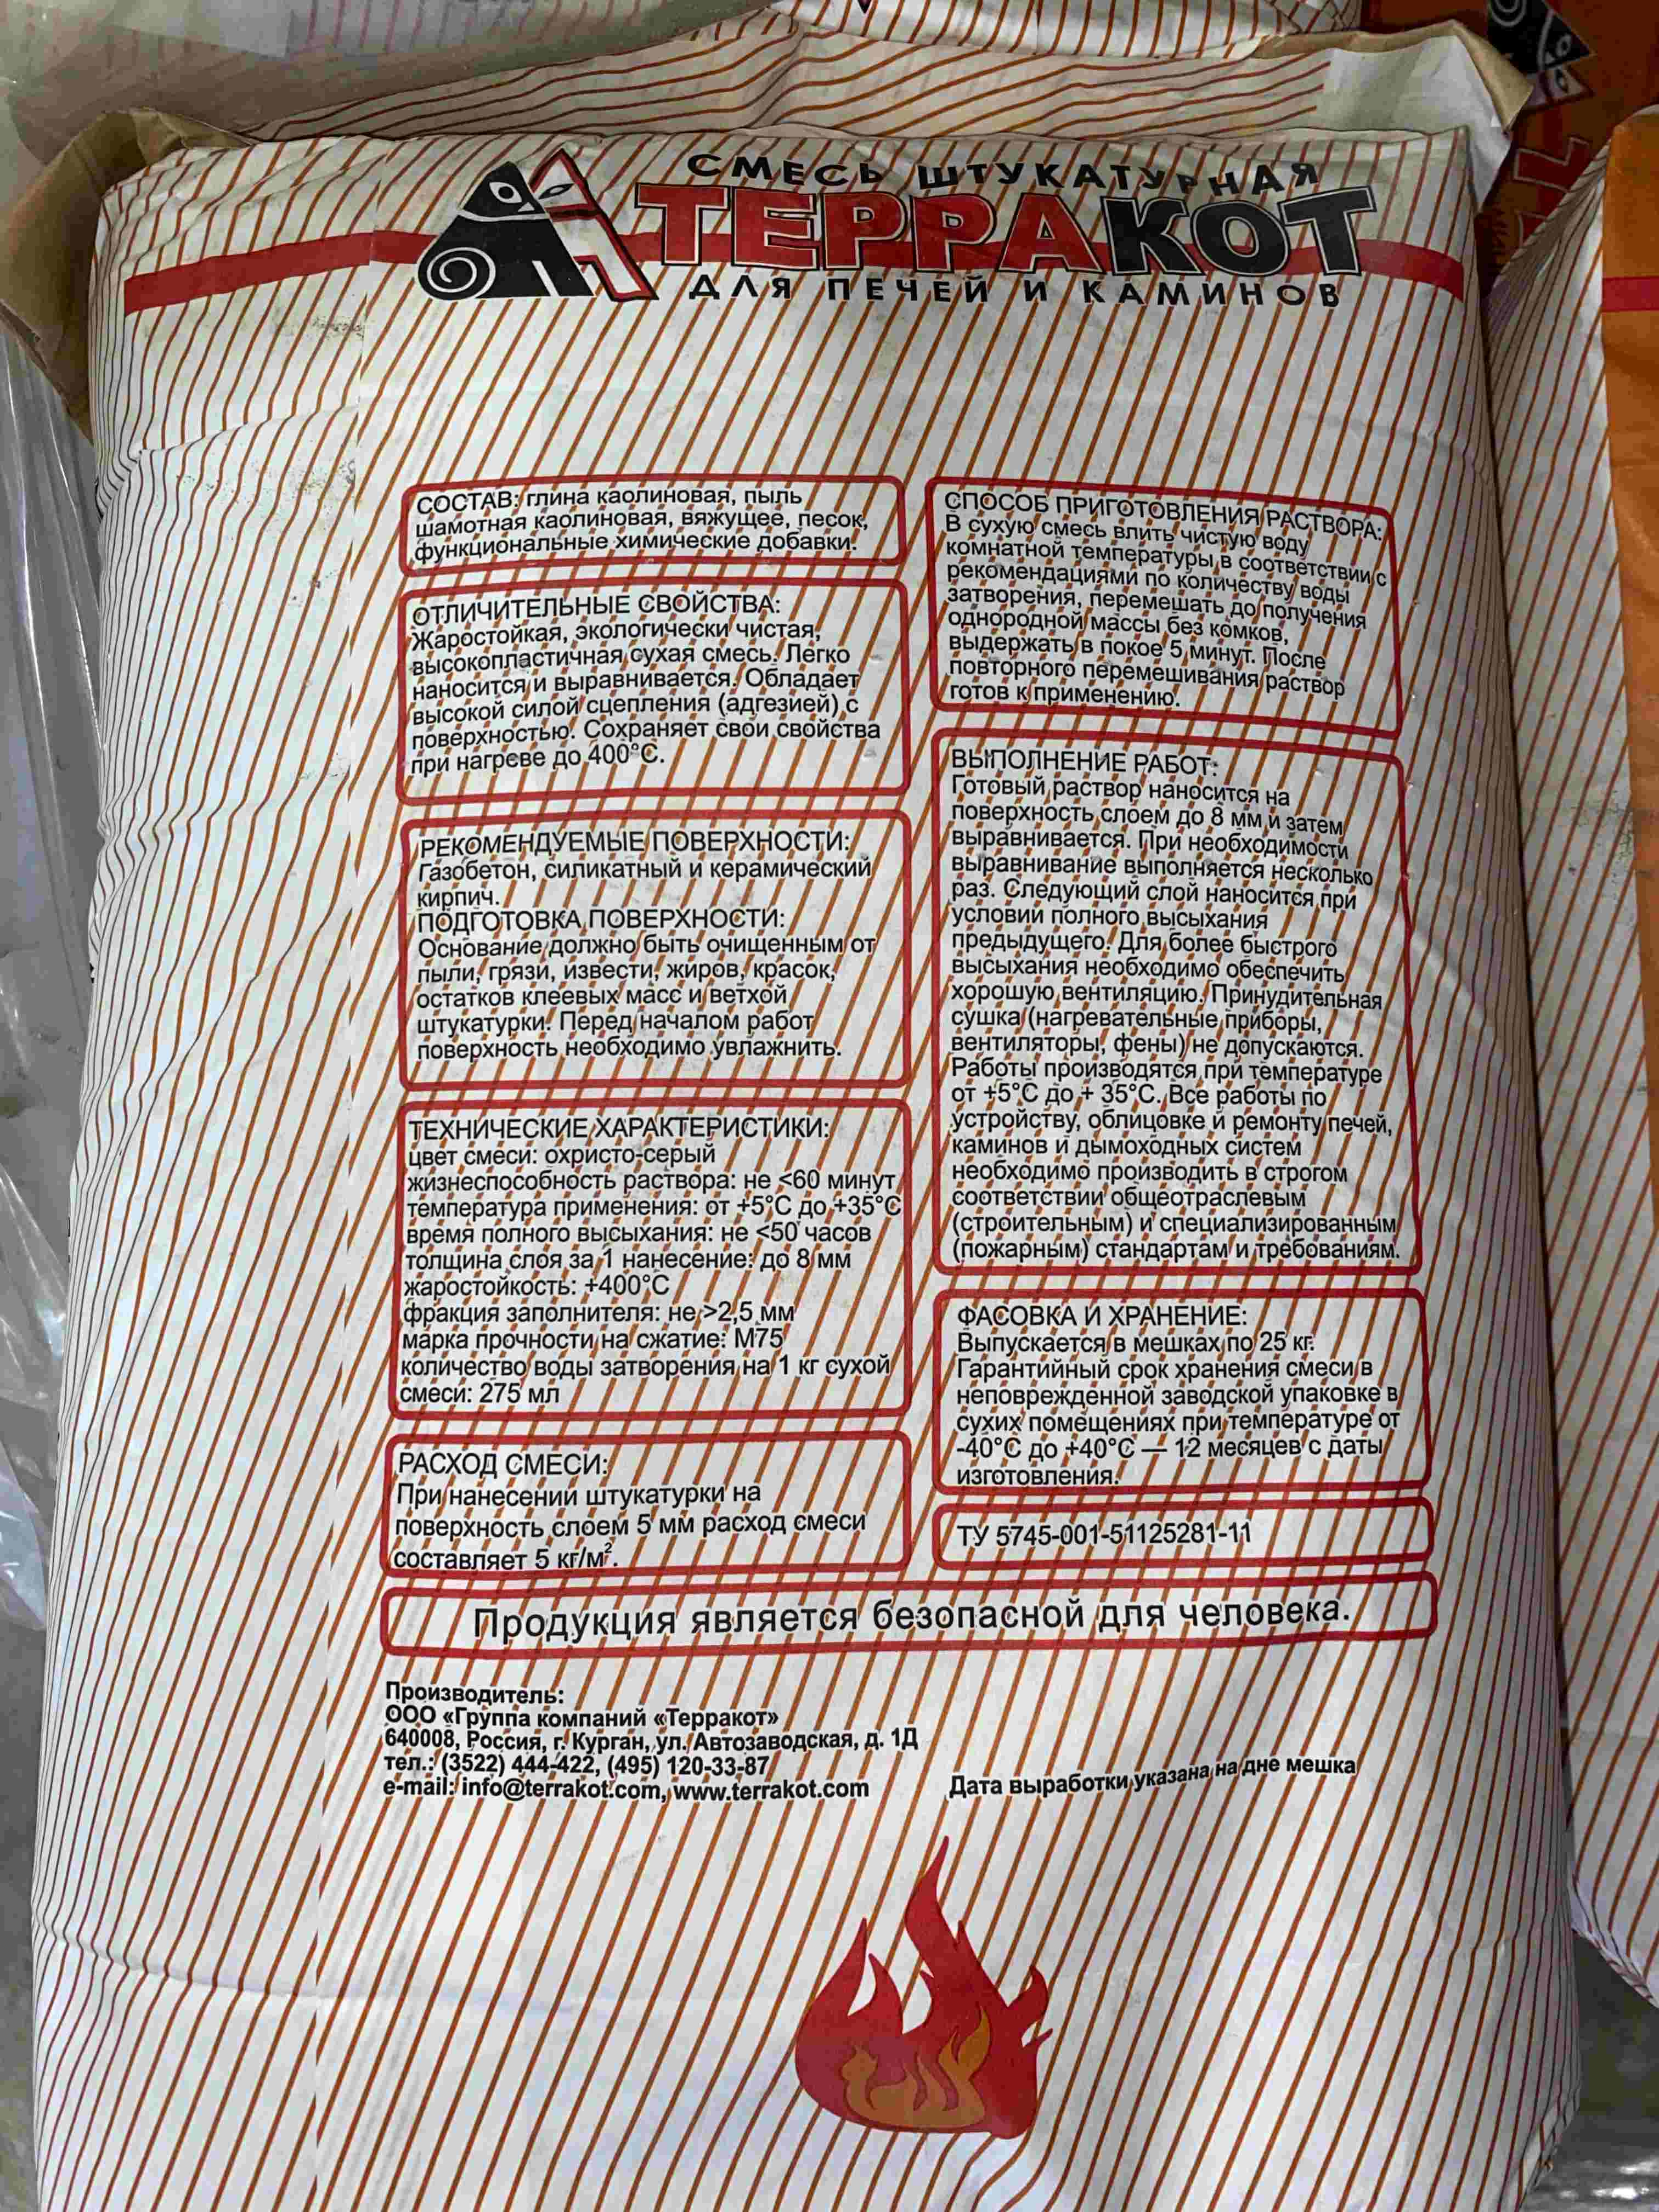 СМЕСЬ ШТУКАТУРНАЯ
ТЕРРАКОТ
ДЛЯ ПЕЧЕЙ И КАМИНОВ
СОСТАВ: глина каолиновая, пыль
шамотная каолиновая, вяжущее, песок,
функциональные химические добавки.
ОТЛИЧИТЕЛЬНЫЕ СВОЙСТВА:
Жаростойкая, экологически чистая,
высокопластичная сухая смесь. Легко
наносится и выравнивается. Обладает
высокой силой сцепления (адгезией) с
поверхностью. Сохраняет свои свойства
при нагреве до 400°С.
РЕКОМЕНДУЕМЫЕ ПОВЕРХНОСТИ:
Газобетон, силикатный и керамический
кирпич.
ПОДГОТОВКА ПОВЕРХНОСТИ:
Основание должно быть очищенным от
пыли, грязи, извести, жиров, красок,
остатков клеевых масс и ветхой
штукатурки. Перед началом работ
поверхность необходимо увлажнить.
ТЕХНИЧЕСКИЕ ХАРАКТЕРИСТИКИ:
цвет смеси: охристо-серый
жизнеспособность раствора: не <60 минут
температура применения: от +5°С до +35°С
время полного высыхания: не <50 часов
толщина слоя за 1 нанесение: до 8 мм
жаростойкость: +400°С
фракция заполнителя: не >2,5 мм
марка прочности на сжатие: М75
количество воды затворения на 1 кг сухой
смеси: 275 мл
РАСХОД СМЕСИ:
При нанесении штукатурки на
поверхность слоем 5 мм расход смеси
составляет 5 кг/м².
СПОСОБ ПРИГОТОВЛЕНИЯ РАСТВОРА:
В сухую смесь влить чистую воду
комнатной температуры в соответствии с
рекомендациями по количеству воды
затворения, перемешать до получения
однородной массы без комков,
выдержать в покое 5 минут. После
повторного перемешивания раствор
готов к применению.
ВЫПОЛНЕНИЕ РАБОТ:
Готовый раствор наносится на
поверхность слоем до 8 мм и затем
выравнивается. При необходимости
выравнивание выполняется несколько
раз. Следующий слой наносится при
условии полного высыхания
предыдущего. Для более быстрого
высыхания необходимо обеспечить
хорошую вентиляцию. Принудительная
сушка (нагревательные приборы,
вентиляторы, фены) не допускаются.
Работы производятся при температуре
от +5°С до + 35°С. Все работы по
устройству, облицовке и ремонту печей,
каминов и дымоходных систем
необходимо производить в строгом
соответствии общеотраслевым
(строительным) и специализированным
(пожарным) стандартам и требованиям.
ФАСОВКА И ХРАНЕНИЕ:
Выпускается в мешках по 25 кг.
Гарантийный срок хранения смеси в
неповрежденной заводской упаковке в
сухих помещениях при температуре от
-40°С до +40°С — 12 месяцев с даты
изготовления.
ТУ 5745-001-51125281-11
Продукция является безопасной для человека.
Производитель:
ООО «Группа компаний «Терракот»
640008, Россия, г. Курган, ул. Автозаводская, д. 1Д
тел.: (3522) 444-422, (495) 120-33-87
e-mail: info@terrakot.com, www.terrakot.com
Дата выработки указана на дне мешка